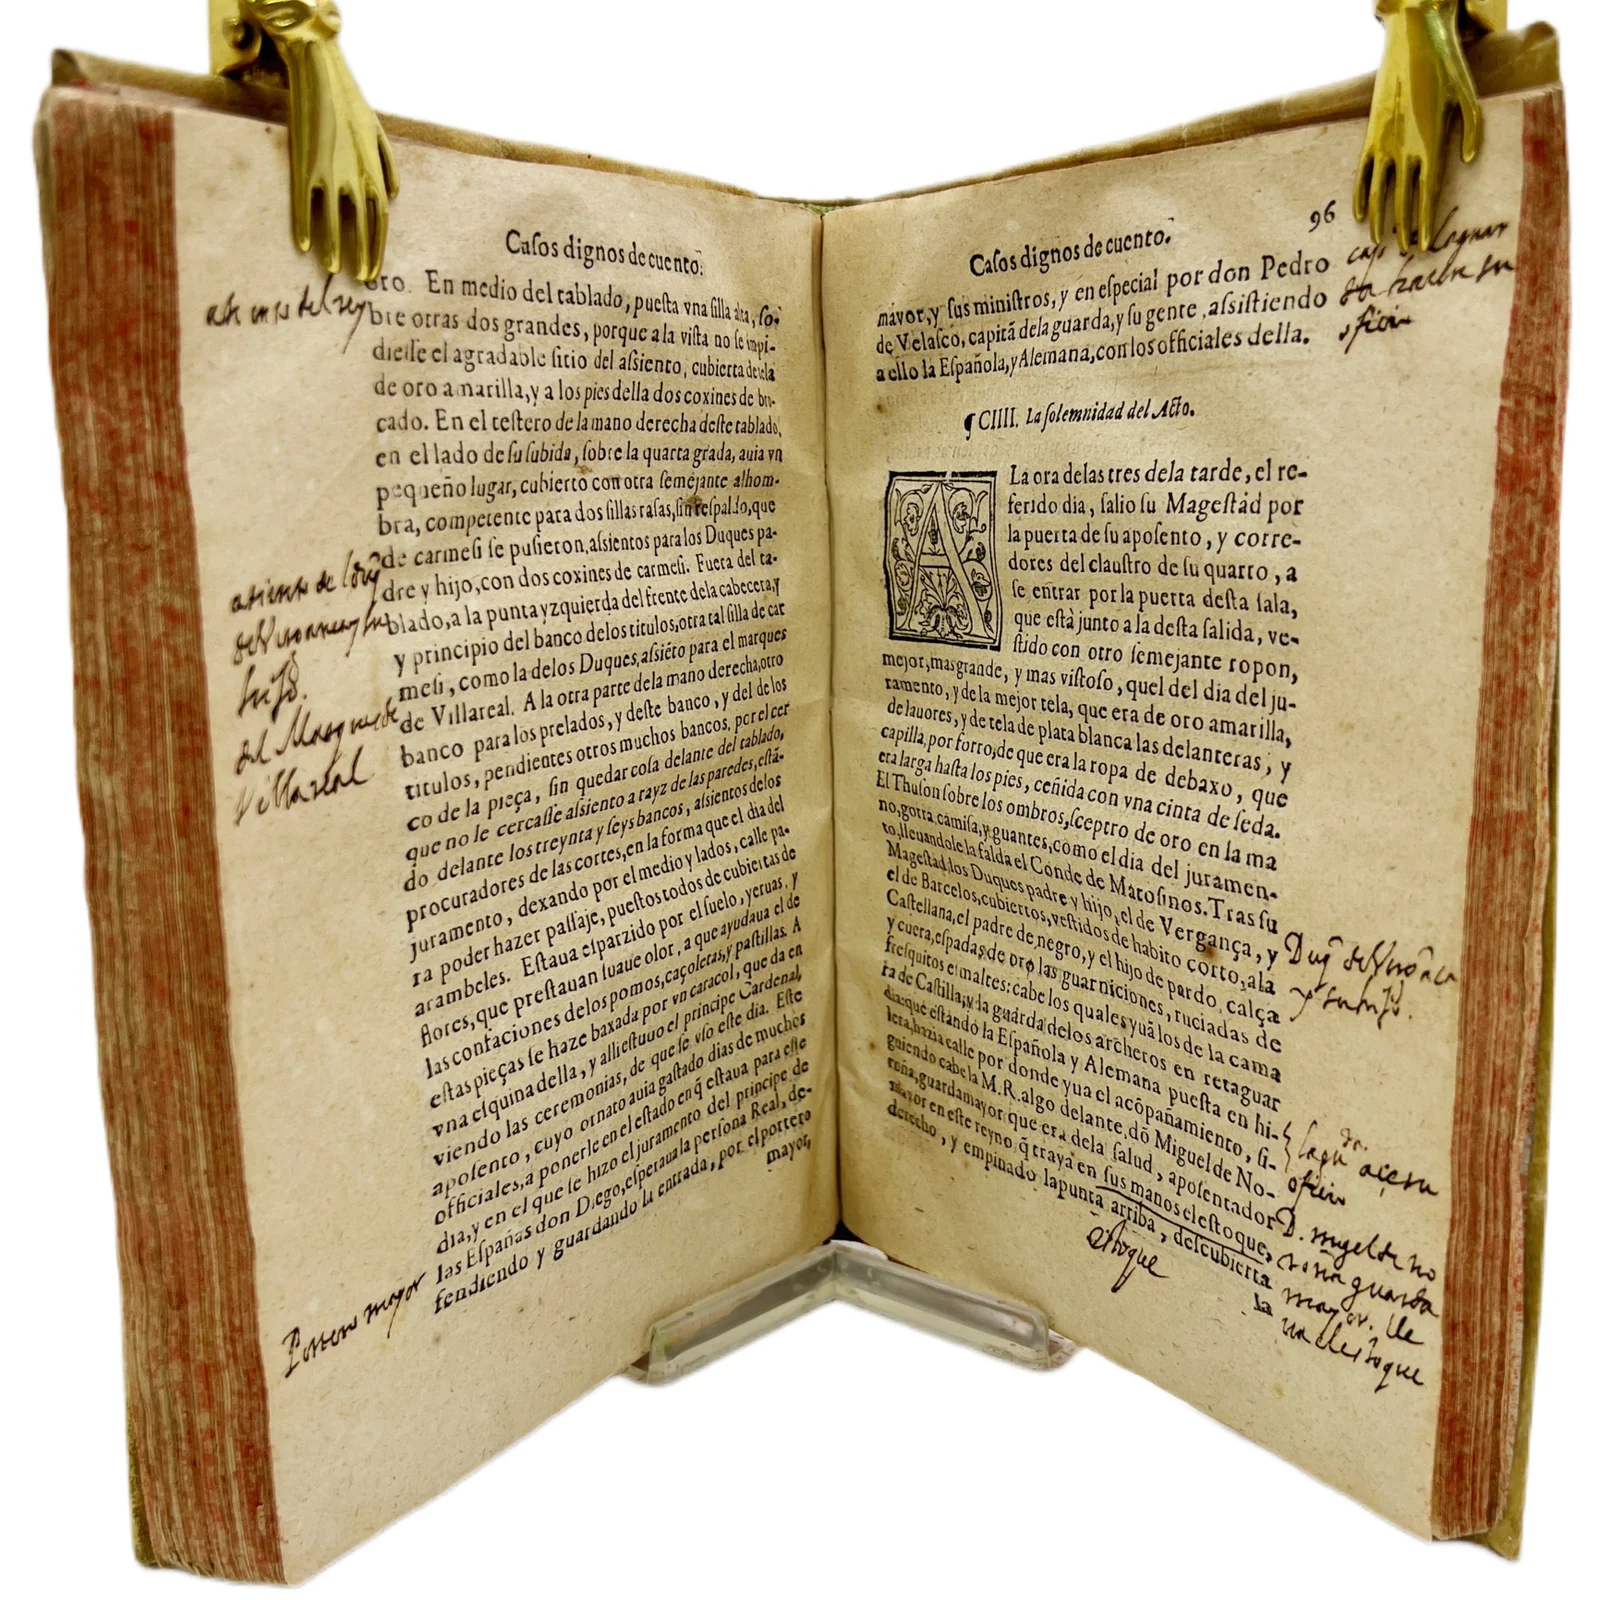 Casos dignos de cuento.
oro. En medio del tablado, puesta vna silla alta, so-
bre otras dos grandes, porque a la vista no se impi-
diesse el agradable sitio del assiento, cubierta de tela
de oro amarilla, y a los pies della dos coxines de bro-
cado. En el testero de la mano derecha deste tablado,
en el lado de su subida, sobre la quarta grada, auia vn
pequeño lugar, cubierto con otra semejante alhom-
bra, competente para dos sillas rasas, sin respaldo, que
de carmesi se pusieron, assientos para los Duques pa-
dre y hijo, con dos coxines de carmesi. Fuera del ta-
blado, a la punta yzquierda del frente dela cabecera, y
y principio del banco delos titulos, otra tal silla de car
mesi, como la delos Duques, assiēto para el marques
de Villareal. A la otra parte dela mano derecha, otro
banco para los prelados, y deste banco, y del delos
titulos, pendientes otros muchos bancos, por el cer
co de la pieça, sin quedar cosa delante del tablado,
que no le cercasse assiento a rayz de las paredes, está-
do delante los treynta y seys bancos, assientos delos
procuradores de las cortes, en la forma que el dia del
juramento, dexando por el medio y lados, calle pa-
ra poder hazer passaje, puestos todos de cubiertas de
arambeles. Estaua esparzido por el suelo, yeruas, y
flores, que prestauan suaue olor, a que ayudaua el de
las confaciones delos pomos, caçoletas, y pastillas. A
estas pieças se haze baxada por vn caracol, que da en
vna esquina della, y alli estuuo el principe Cardenal,
viendo las ceremonias, de que se vso este dia. Este
aposento, cuyo ornato auia gastado dias de muchos
officiales, a ponerle en el estado en q̃ estaua para este
dia, y en el que se hizo el juramento del principe de
las Españas don Diego, esperaua la persona Real, de-
fendiendo y guardando la entrada, por el portero
mayor,
asiento de Duq̃
del Marques de
Villareal
Portero mayor
Casos dignos de cuento.
96
mayor, y sus ministros, y en especial por don Pedro
de Velasco, capitã dela guarda, y su gente, assistiendo
a ello la Española, y Alemana, con los officiales della.
¶ CIIII. La solemnidad del Acto.
A La ora delas tres dela tarde, el re-
ferido dia, salio su Magestad por
la puerta de su aposento, y corre-
dores del claustro de su quarto, a
se entrar por la puerta desta sala,
que está junto a la desta salida, ve-
stido con otro semejante ropon,
mejor, mas grande, y mas vistoso, quel del dia del ju-
ramento, y de la mejor tela, que era de oro amarilla,
de lauores, y de tela de plata blanca las delanteras, y
capilla, por forro, de que era la ropa de debaxo, que
era larga hasta los pies, ceñida con vna cinta de seda.
El Thuson sobre los ombros, sceptro de oro en la ma
no, gorra, camisa, y guantes, como el dia del juramen-
to, lleuandole la falda el Conde de Matosinos. Tras su
Magestad, los Duques padre y hijo, el de Vergança, y
el de Barcelos, cubiertos, vestidos de habito corto, ala
Castellana, el padre de negro, y el hijo de pardo, calça
y cuera, espadas de oro las guarniciones, ruciadas de
fresquitos esmaltes: cabe los quales yuã los de la cama
ra de Castilla, y la guarda delos archeros en retaguar
dia: que estãdo la Española y Alemana puesta en hi-
lera, hazia calle por donde yua el acõpañamiento, si-
guiendo cabe la M.R. algo delante, dõ Miguel de No-
roña, guardamayor que era dela salud, aposentador
mayor en este reyno, q̃ traya en sus manos el estoque,
derecho, y empinado la punta arriba, descubierta
la
oficio
y su hijo.
oficio
D. migel de no
roña guarda
mayor. lle
ua el estoque
estoque